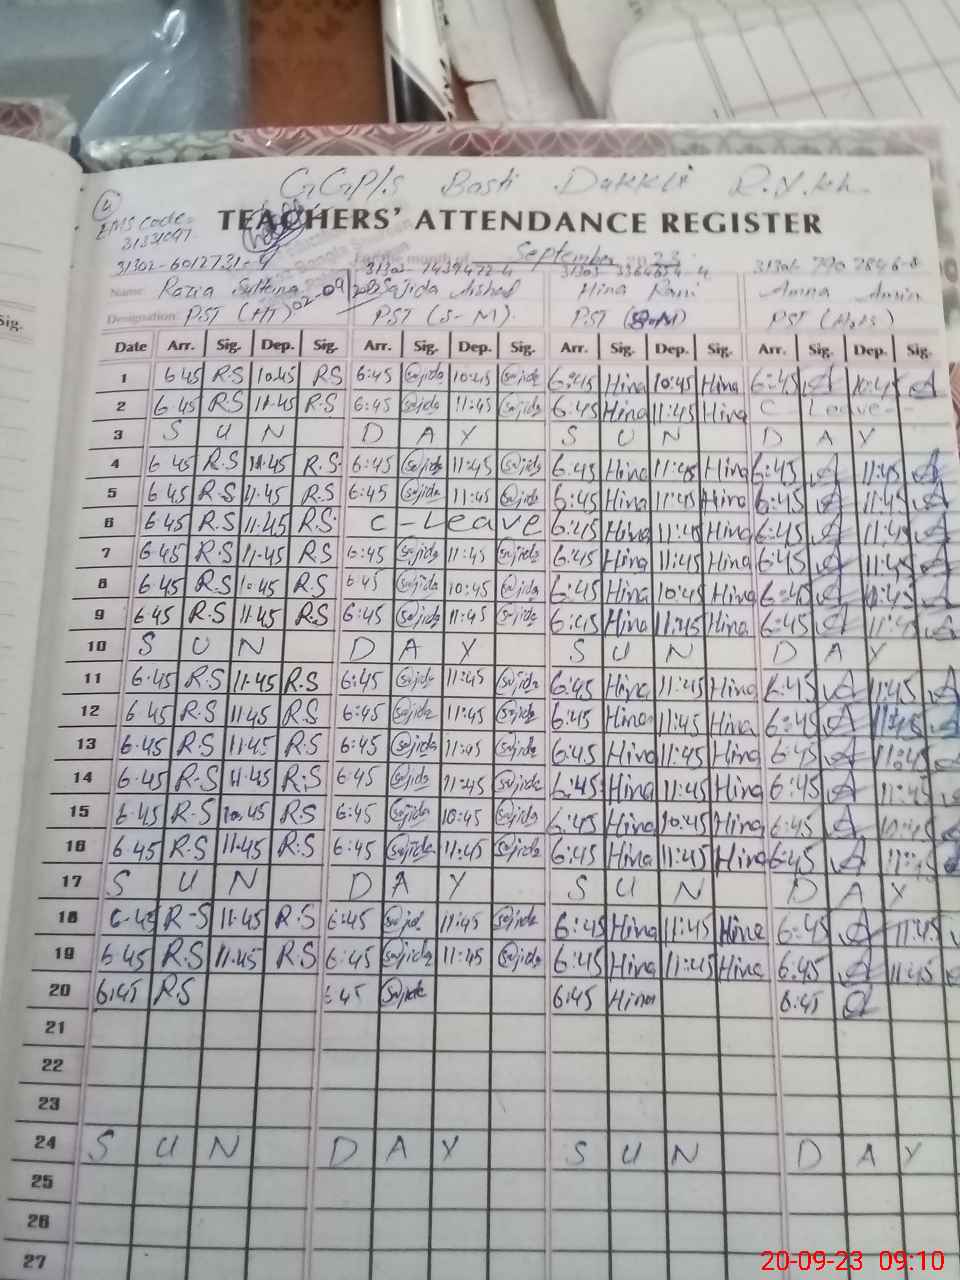 GGP/S Basti Dakkli R.Y.kh.
4
EMS Code=
31331097
TEACHERS' ATTENDANCE REGISTER
For the month of September 2023
31302-6012731-4 31303-7439472-4 31303-3364854-4
Name: Razia Sultana 02-09 2023 Sajida Arshad Hina Rani Amna Amin
Designation: PST (HT) PST (S-M). PST PST
Sig.
Date Arr. Sig. Dep. Sig. Arr. Sig. Dep. Sig. Arr. Sig. Dep. Sig. Arr. Sig. Dep. Sig.
1 6 45 R.S 10.45 RS 6:45 Sajida 10:45 Sajida 6:45 Hina 10:45 Hina 6:45 A 10:45 A
2 6 45 R.S 11.45 R.S 6:45 Sajida 11:45 Sajida 6:45 Hina 11:45 Hina C - Leave -
3 S U N D A Y S U N D A Y
4 6 45 R.S 11.45 R.S. 6:45 Sajida 11:45 Sajida 6:45 Hina 11:45 Hina 6:45 A 11:45 A
5 6 45 R.S 11.45 R.S 6:45 Sajida 11:45 Sajida 6:45 Hina 11:45 Hina 6:45 A 11:45 A
6 6.45 R.S 11.45 R.S. C - Leave 6:45 Hina 11:45 Hina 6:45 A 11:45 A
7 6.45 R.S 11.45 RS 6:45 Sajida 11:45 Sajida 6:45 Hina 11:45 Hina 6:45 A 11:45 A
8 6.45 R.S 10.45 R.S 6:45 Sajida 10:45 Sajida 6:45 Hina 10:45 Hina 6:45 A 10:45 A
9 6 45 R.S 11.45 R.S 6:45 Sajida 11:45 Sajida 6:45 Hina 11:45 Hina 6:45 A 11:45 A
10 S U N D A Y S U N D A Y
11 6.45 R.S 11.45 R.S 6:45 Sajida 11:45 Sajida 6:45 Hina 11:45 Hina 6:45 A 11:45 A
12 6 45 R.S 11.45 R.S 6:45 Sajida 11:45 Sajida 6:45 Hina 11:45 Hina 6:45 A 11:45 A
13 6.45 R.S 11.45 R.S 6:45 Sajida 11:45 Sajida 6:45 Hina 11:45 Hina 6:45 A 11:45
14 6.45 R.S 11.45 R.S 6:45 Sajida 11:45 Sajida 6:45 Hina 11:45 Hina 6:45 A 11:45
15 6.45 R-S 10.45 R.S 6:45 Sajida 10:45 Sajida 6:45 Hina 10:45 Hina 6:45 A 10:45
16 6.45 R.S 11.45 R.S 6:45 Sajida 11:45 Sajida 6:45 Hina 11:45 Hina 6:45 A 11:45
17 S U N D A Y S U N D A Y
18 6.45 R-S 11.45 R.S 6:45 Sajid 11:45 Sajida 6:45 Hina 11:45 Hina 6:45 A 11:45
19 6.45 R.S 11.45 R.S 6:45 Sajida 11:45 Sajida 6:45 Hina 11:45 Hina 6:45 A 11:45
20 6:45 R.S 6:45 Sajida 6:45 Hina 6:45 A
21
22
23
24 S U N D A Y S U N D A Y
25
26
27
20-09-23 09:10